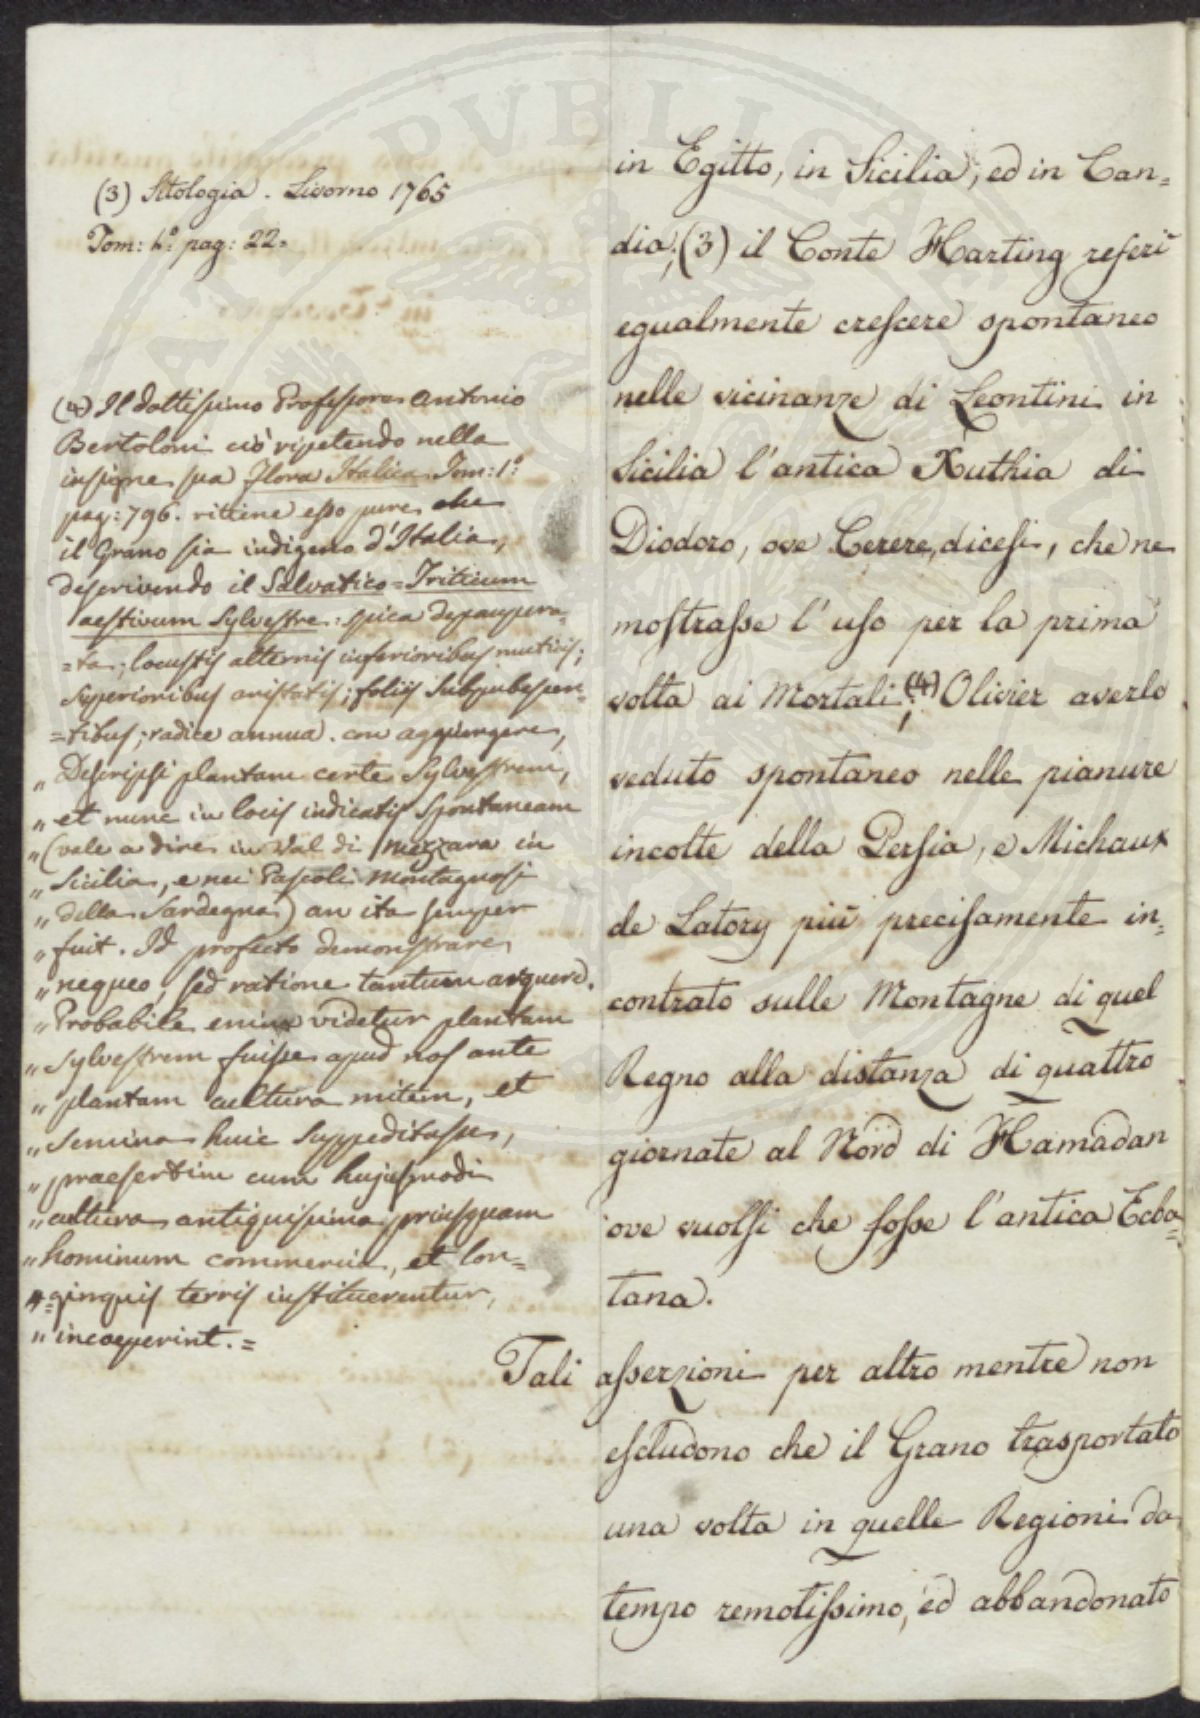 (3) Sitologia. Livorno 1765
Tom: 1.º pag: 22.
(4) Il dottissimo Professore Antonio
Bertoloni ciò ripetendo nella
insigne sua Flora Italica Tom: 1.º
pag: 796. ritiene esso pure che
il Grano sia indigeno d'Italia,
descrivendo il Salvatico = Triticum
aestivum Sylvestre: spica depaupera-
=ta; locustis alternis inferioribus muticis;
superioribus aristatis; foliis subpubescen-
=tibus; radice annua. con aggiungere,
„ Descripsi plantam certe Sylvestrem,
„ et nunc in locis indicatis Spontaneam
„ (vale a dire in Val di Mazzara in
„ Sicilia, e nei Pascoli Montagnosi
„ della Sardegna) an ita semper
„ fuit. Id profecto demonstrare
„ nequeo, sed ratione tantum arguere.
„ Probabile enim videtur plantam
„ Sylvestrem fuisse apud nos ante
„ plantam cultura mitem, et
„ Semina huic Suppeditasse,
„ praesertim cum hujusmodi
„ cultura antiquissima, priusquam
„ hominum commercia, et lon=
„ =ginquis terris instituerentur,
„ incoeperint. =
in Egitto, in Sicilia, ed in Can=
dia; (3) il Conte Harting referì
egualmente crescere spontaneo
nelle vicinanze di Leontini in
Sicilia l'antica Xuthia di
Diodoro, ove Cerere, dicesi, che ne
mostrasse l'uso per la prima
volta ai Mortali; (4) Olivier averlo
veduto spontaneo nelle pianure
incolte della Persia, e Michaux
de Latory più precisamente in=
contrato sulle Montagne di quel
Regno alla distanza di quattro
giornate al Nord di Hamadan
ove vuolsi che fosse l'antica Ecba=
tana.
Tali asserzioni per altro mentre non
escludono che il Grano trasportato
una volta in quelle Regioni da
tempo remotissimo, ed abbandonato